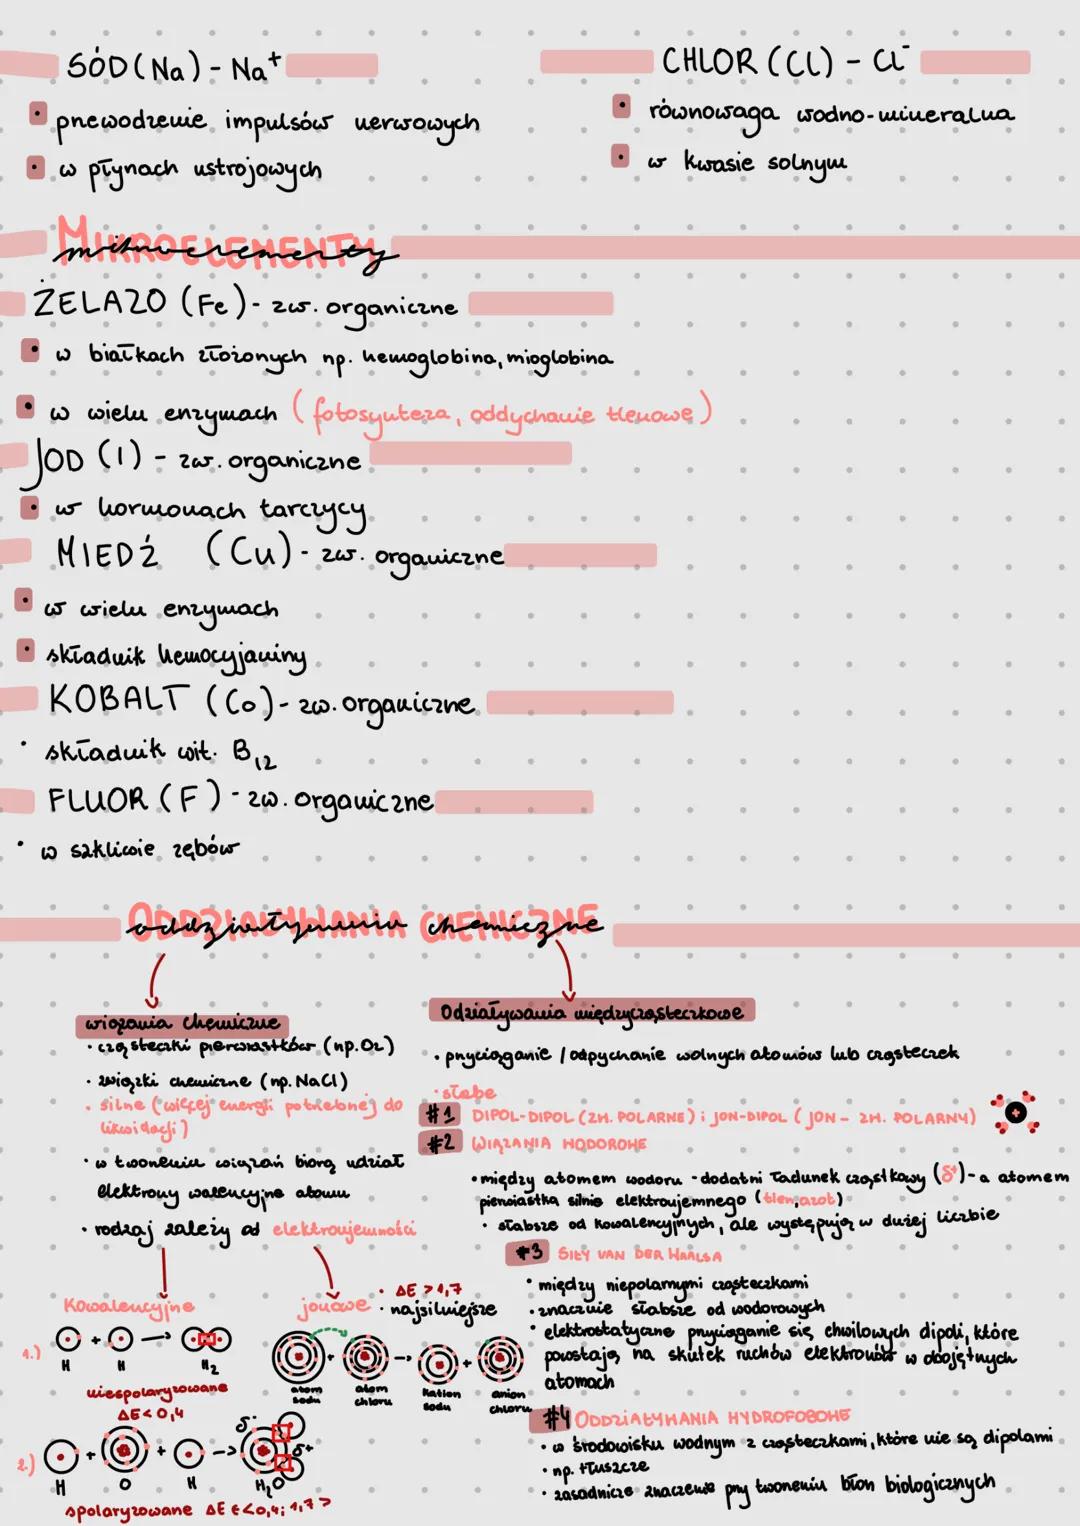 SÓD (Na) - Na⁺
• przewodzenie impulsów nerwowych
• w płynach ustrojowych
CHLOR (Cl) - Cl⁻
• równowaga wodno-mineralna
• w kwasie solnym
MIKROELEMENTY
mikroelementy
ŻELAZO (Fe) - zw. organiczne
• w białkach złożonych np. hemoglobina, mioglobina
• w wielu enzymach (fotosynteza, oddychanie tlenowe)
JOD (I) - zw. organiczne
• w hormonach tarczycy
MIEDŹ (Cu) - zw. organiczne
• w wielu enzymach
• składnik hemocyjaniny
KOBALT (Co) - zw. organiczne
• składnik wit. B₁₂
FLUOR (F) - zw. organiczne
• w szkliwie zębów
ODDZIAŁYWANIA CHEMICZNE
oddziaływania chemiczne
wiązania chemiczne
• cząsteczki pierwiastków (np. O₂)
• związki chemiczne (np. NaCl)
• silne (więcej energii potrzebnej do
likwidacji)
• w tworzeniu wiązań biorą udział
elektrony walencyjne atomu
• rodzaj zależy od elektroujemności
Kowalencyjne
1.) H + H → H₂
niespolaryzowane
ΔE < 0,4
2.) H + O + H → H₂O
δ⁻
δ⁺
spolaryzowane ΔE ∈ <0,4; 1,7>
jonowe
• ΔE > 1,7
• najsilniejsze
atom sodu
atom chloru
kation sodu
anion chloru
Odziaływania międzycząsteczkowe
• przyciąganie / odpychanie wolnych atomów lub cząsteczek
• słabe
#1 DIPOL-DIPOL (ZW. POLARNE) i JON-DIPOL (JON - ZW. POLARNY)
+
#2 WIĄZANIA WODOROWE
• między atomem wodoru - dodatni ładunek cząstkowy (δ⁺) - a atomem
pierwiastka silnie elektroujemnego (tlen, azot)
• słabsze od kowalencyjnych, ale występują w dużej liczbie
#3 SIŁY VAN DER WAALSA
• między niepolarnymi cząsteczkami
• znacznie słabsze od wodorowych
• elektrostatyczne przyciąganie się chwilowych dipoli, które
powstają na skutek ruchów elektronów w obojętnych
atomach
#4 ODDZIAŁYWANIA HYDROFOBOWE
• w środowisku wodnym z cząsteczkami, które nie są dipolami
• np. tłuszcze
• zasadnicze znaczenie przy tworzeniu błon biologicznych